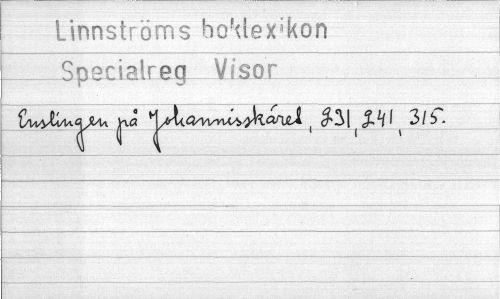 Linnströms boklexikon
Specialreg Visor
Enslingen på Johannisskäret, 231, 241, 315.